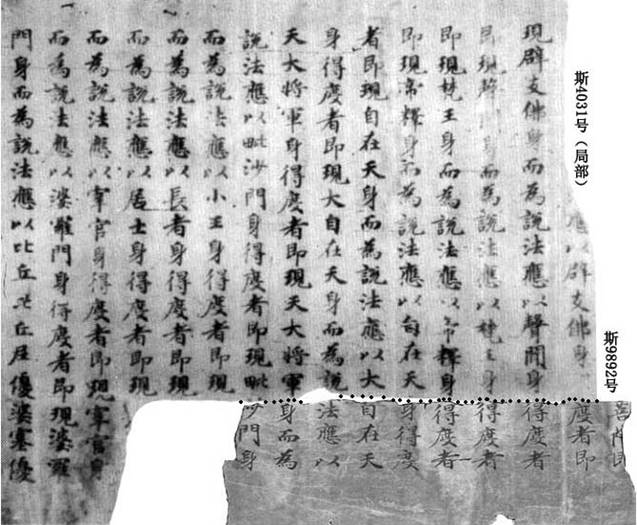 斯4031号（局部）
斯9892号
應以辟支佛身度者即
現辟支佛身而為說法應以聲聞身得度者
即現聲身而為說法應以梵王身得度者
即現梵王身而為說法應以帝釋身得度者
即現帝釋身而為說法應以自在天身得度
者即現自在天身而為說法應以大自在天
身得度者即現大自在天身而為說法應以
天大將軍身得度者即現天大將軍身而為
說法應以毗沙門身得度者即現毗沙門身
而為說法應以小王身得度者即現
而為說法應以長者身得度者即現
而為說法應以居士身得度者即現
而為說法應以宰官身得度者即現宰官身
而為說法應以婆羅門身得度者即現婆羅
門身而為說法應以比丘比丘尼優婆塞優